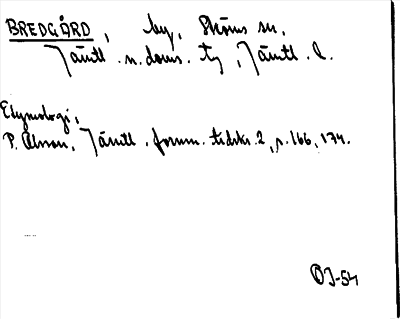 BREDGÅRD, by, Ströms sn,
Jämtl. n. doms. tg, Jämtl. l.
Etymologi,
P. Olsson, Jämtl. fornm. tidskr. 2, s. 166, 174.
OJ-54